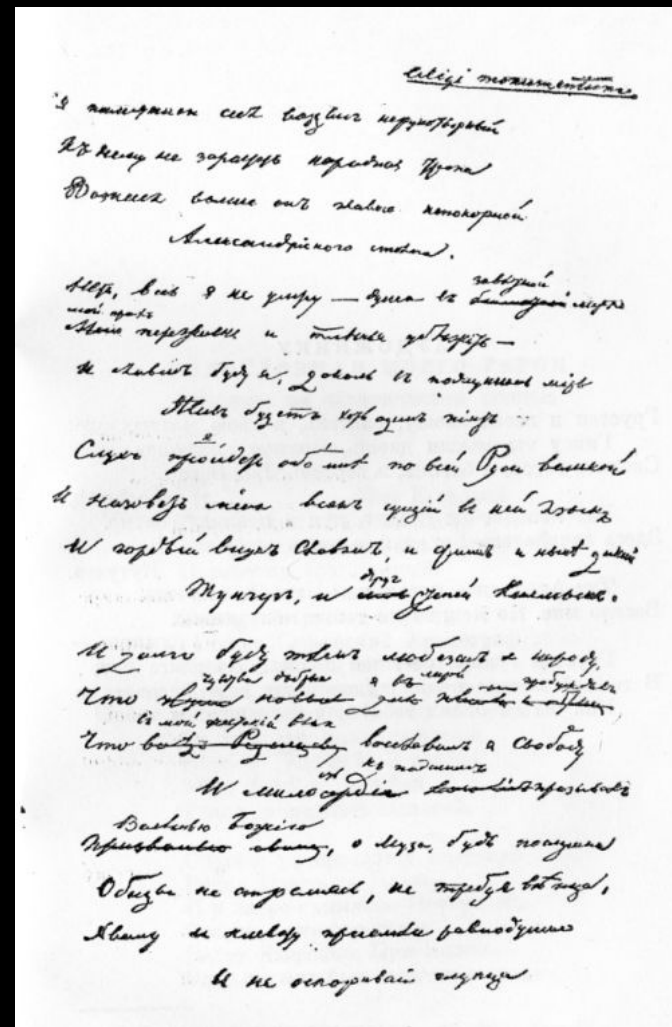 Exegi monumentum.
Я памятникъ себѣ воздвигъ нерукотворный
Къ нему не заростетъ народная тропа
Вознесся выше онъ главою непокорной
Александрійскаго столпа.
Нѣтъ, весь я не умру — душа въ завѣтной лирѣ
Мой прахъ переживетъ и тлѣнья убѣжитъ —
И славенъ буду я, доколь въ подлунномъ мірѣ
Живъ будетъ хоть одинъ піитъ
Слухъ пройдетъ обо мнѣ по всей Руси великой
И назоветъ меня всякъ сущій въ ней языкъ
И гордый внукъ Славянъ, и финнъ, и нынѣ дикій
Тунгузъ, и другъ степей Калмыкъ.
И долго буду тѣмъ любезенъ я народу,
чувства добрыя я въ лирой пробуждалъ
Что звуки новые для
въ мой жестокій вѣкъ
Что вслѣдъ Радищеву возславилъ я Свободу
къ падшимъ
И милосердіе призывалъ
Велѣнью Божію
о Муза, будь послушна
Обиды не страшась, не требуя вѣнца,
Хвалу и клевету пріемли равнодушно
И не оспоривай глупца